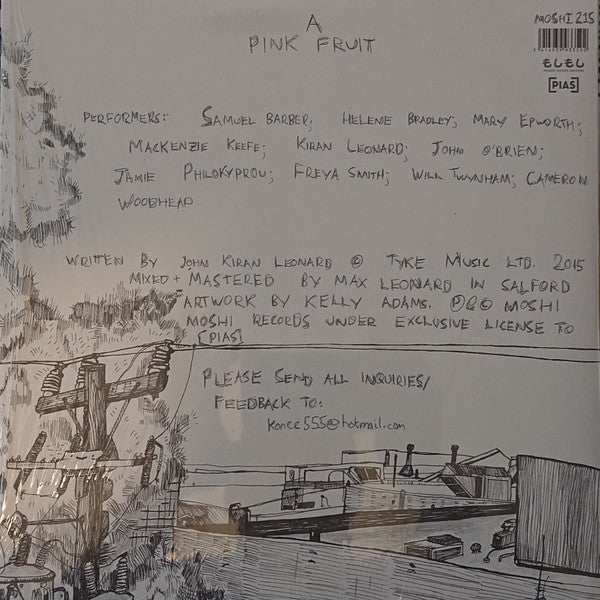 A
PINK FRUIT
MOSHI 215
もしもし
[PIAS]
PERFORMERS: SAMUEL BARBER; HELENE BRADLEY; MARY EPWORTH;
MACKENZIE KEEFE; KIRAN LEONARD; JOHN O'BRIEN;
JAMIE PHILOKYPROU; FREYA SMITH; WILL TWYNHAM; CAMERON
WOODHEAD
WRITTEN BY JOHN KIRAN LEONARD © TYKE MUSIC LTD. 2015
MIXED + MASTERED BY MAX LEONARD IN SALFORD
ARTWORK BY KELLY ADAMS. Ⓟ&© MOSHI
MOSHI RECORDS UNDER EXCLUSIVE LICENSE TO
[PIAS]
PLEASE SEND ALL INQUIRIES/
FEEDBACK TO:
@hotmail.com